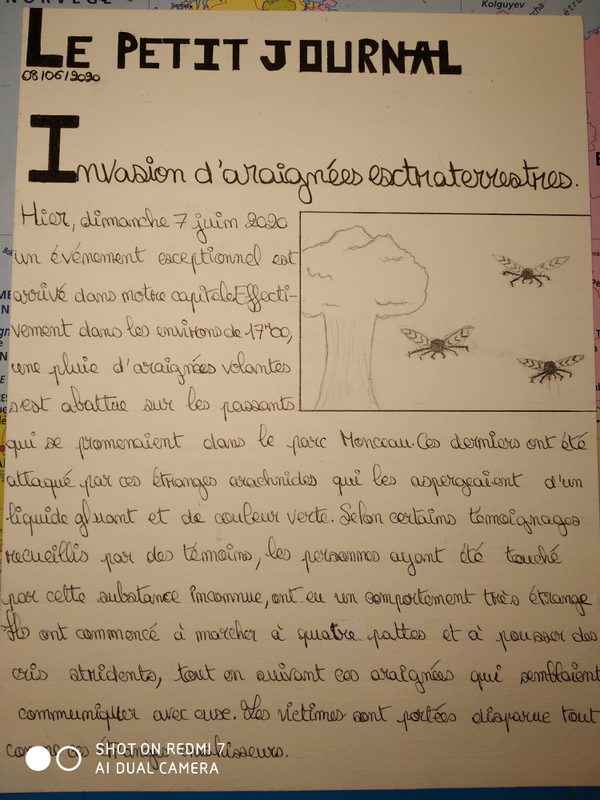 Kolguyev
LE PETIT JOURNAL
08/06/2020
Invasion d'araignées esctraterrestres.
Hier, dimanche 7 juin 2020
un événement exceptionnel est
arrivé dans notre capitale. Effecti-
vement dans les environs de 17h00,
une pluie d'araignées volantes
s'est abattue sur les passants
qui se promenaient dans le parc Monceau. Ces derniers ont été
attaqué par ces étranges arachnides qui les aspergeaient d'un
liquide gluant et de couleur verte. Selon certains témoignages
recueillis par des témoins, les personnes ayant été touché
par cette substance inconnue, ont eu un comportement très étrange
Ils ont commencé à marcher à quatre pattes et à pousser des
cris stridents, tout en suivant ces araignées qui semblaient
communiquer avec eux. Les victimes sont portées disparue tout
comme ces étranges envahisseurs.
SHOT ON REDMI 7
AI DUAL CAMERA